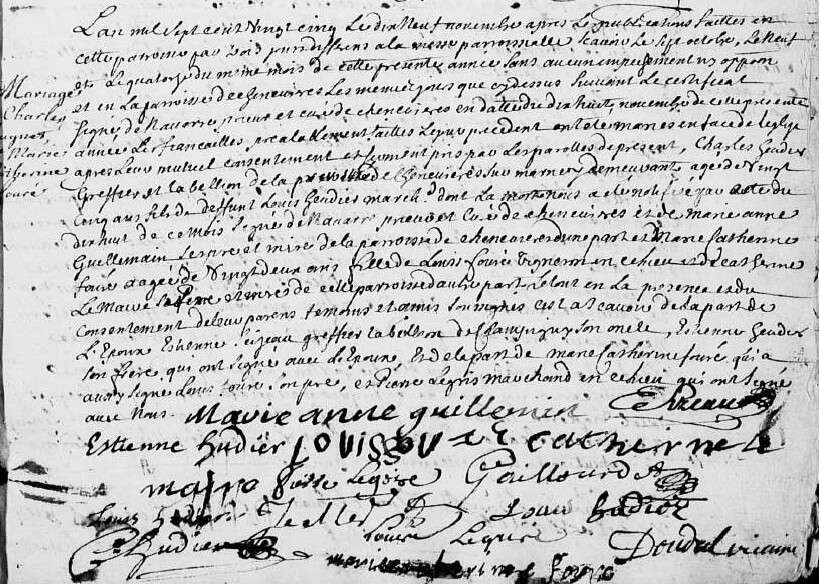 L'an mil sept cent vingt cinq le dix neuf novembre apres les publications faittes en
cette parroisse par trois jours differens a la messe parroissialle scavoir le sept octobre, le neuf
et le quatorze du meme mois de cette presente année sans aucun empeschement ny oppon
et en la parroisse de chenevieres les memes jours que cy dessus suivant le certificat
signé de Navarre prieur et curé de chenevieres en datte du dix huit novembre de cette presente
année Les fiancailles prealablement faittes le jour precedent ont ete mariés en face de leglise
apres Leur mutuel consentement et serment pris par les parolles de present, Charles
Greffier et tabellion de la prevosté de Chenevieres sur marne y demeurant agé de Vingt
Cinq ans fils de deffunt Louis march. dont la mort nous a eté notifiée par acte du
dix huit de ce mois signé de Navarre prieur et Curé de chenevieres et de marie anne
Guillemain ses pere et mere de la parroisse de chenevieres d'une part et Marie Catherine
fouré agée de Vingt deux ans fille de Louis fouré Vigneron en ce lieu et de catherine
Le Maire ses Pere et mere de cette parroisse d'autre part le tout en la presence et du
consentement de leur parens temoins et amis soussignés c'est a scavoir de la part de
L'Epoux Estienne greffier tabellion de Champigny son oncle, Estienne
son frere qui ont signé avec l'Epoux, Et de la part de marie Catherine fouré qui a
aussy signé Louis fouré son pere, et Pierre Legris marchand en ce lieu qui ont signé
avec Nous.
Mariage
Charles
Marie
Catherine
fouré
Marie anne guillemin
Estienne hudier Louis catherine le
maire Gaillourd
Louis
hudier Louise Doudal vicaire
marie